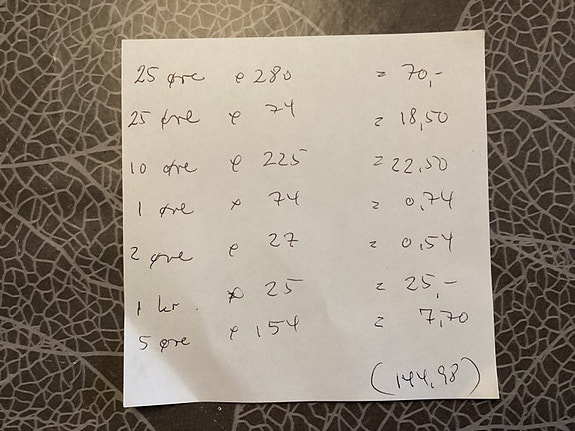 25 øre e 280 = 70,-
25 øre e 74 = 18,50
10 øre e 225 = 22,50
1 øre x 74 = 0,74
2 øre e 27 = 0,54
1 kr. x 25 = 25,-
5 øre e 154 = 7,70
(144,98)